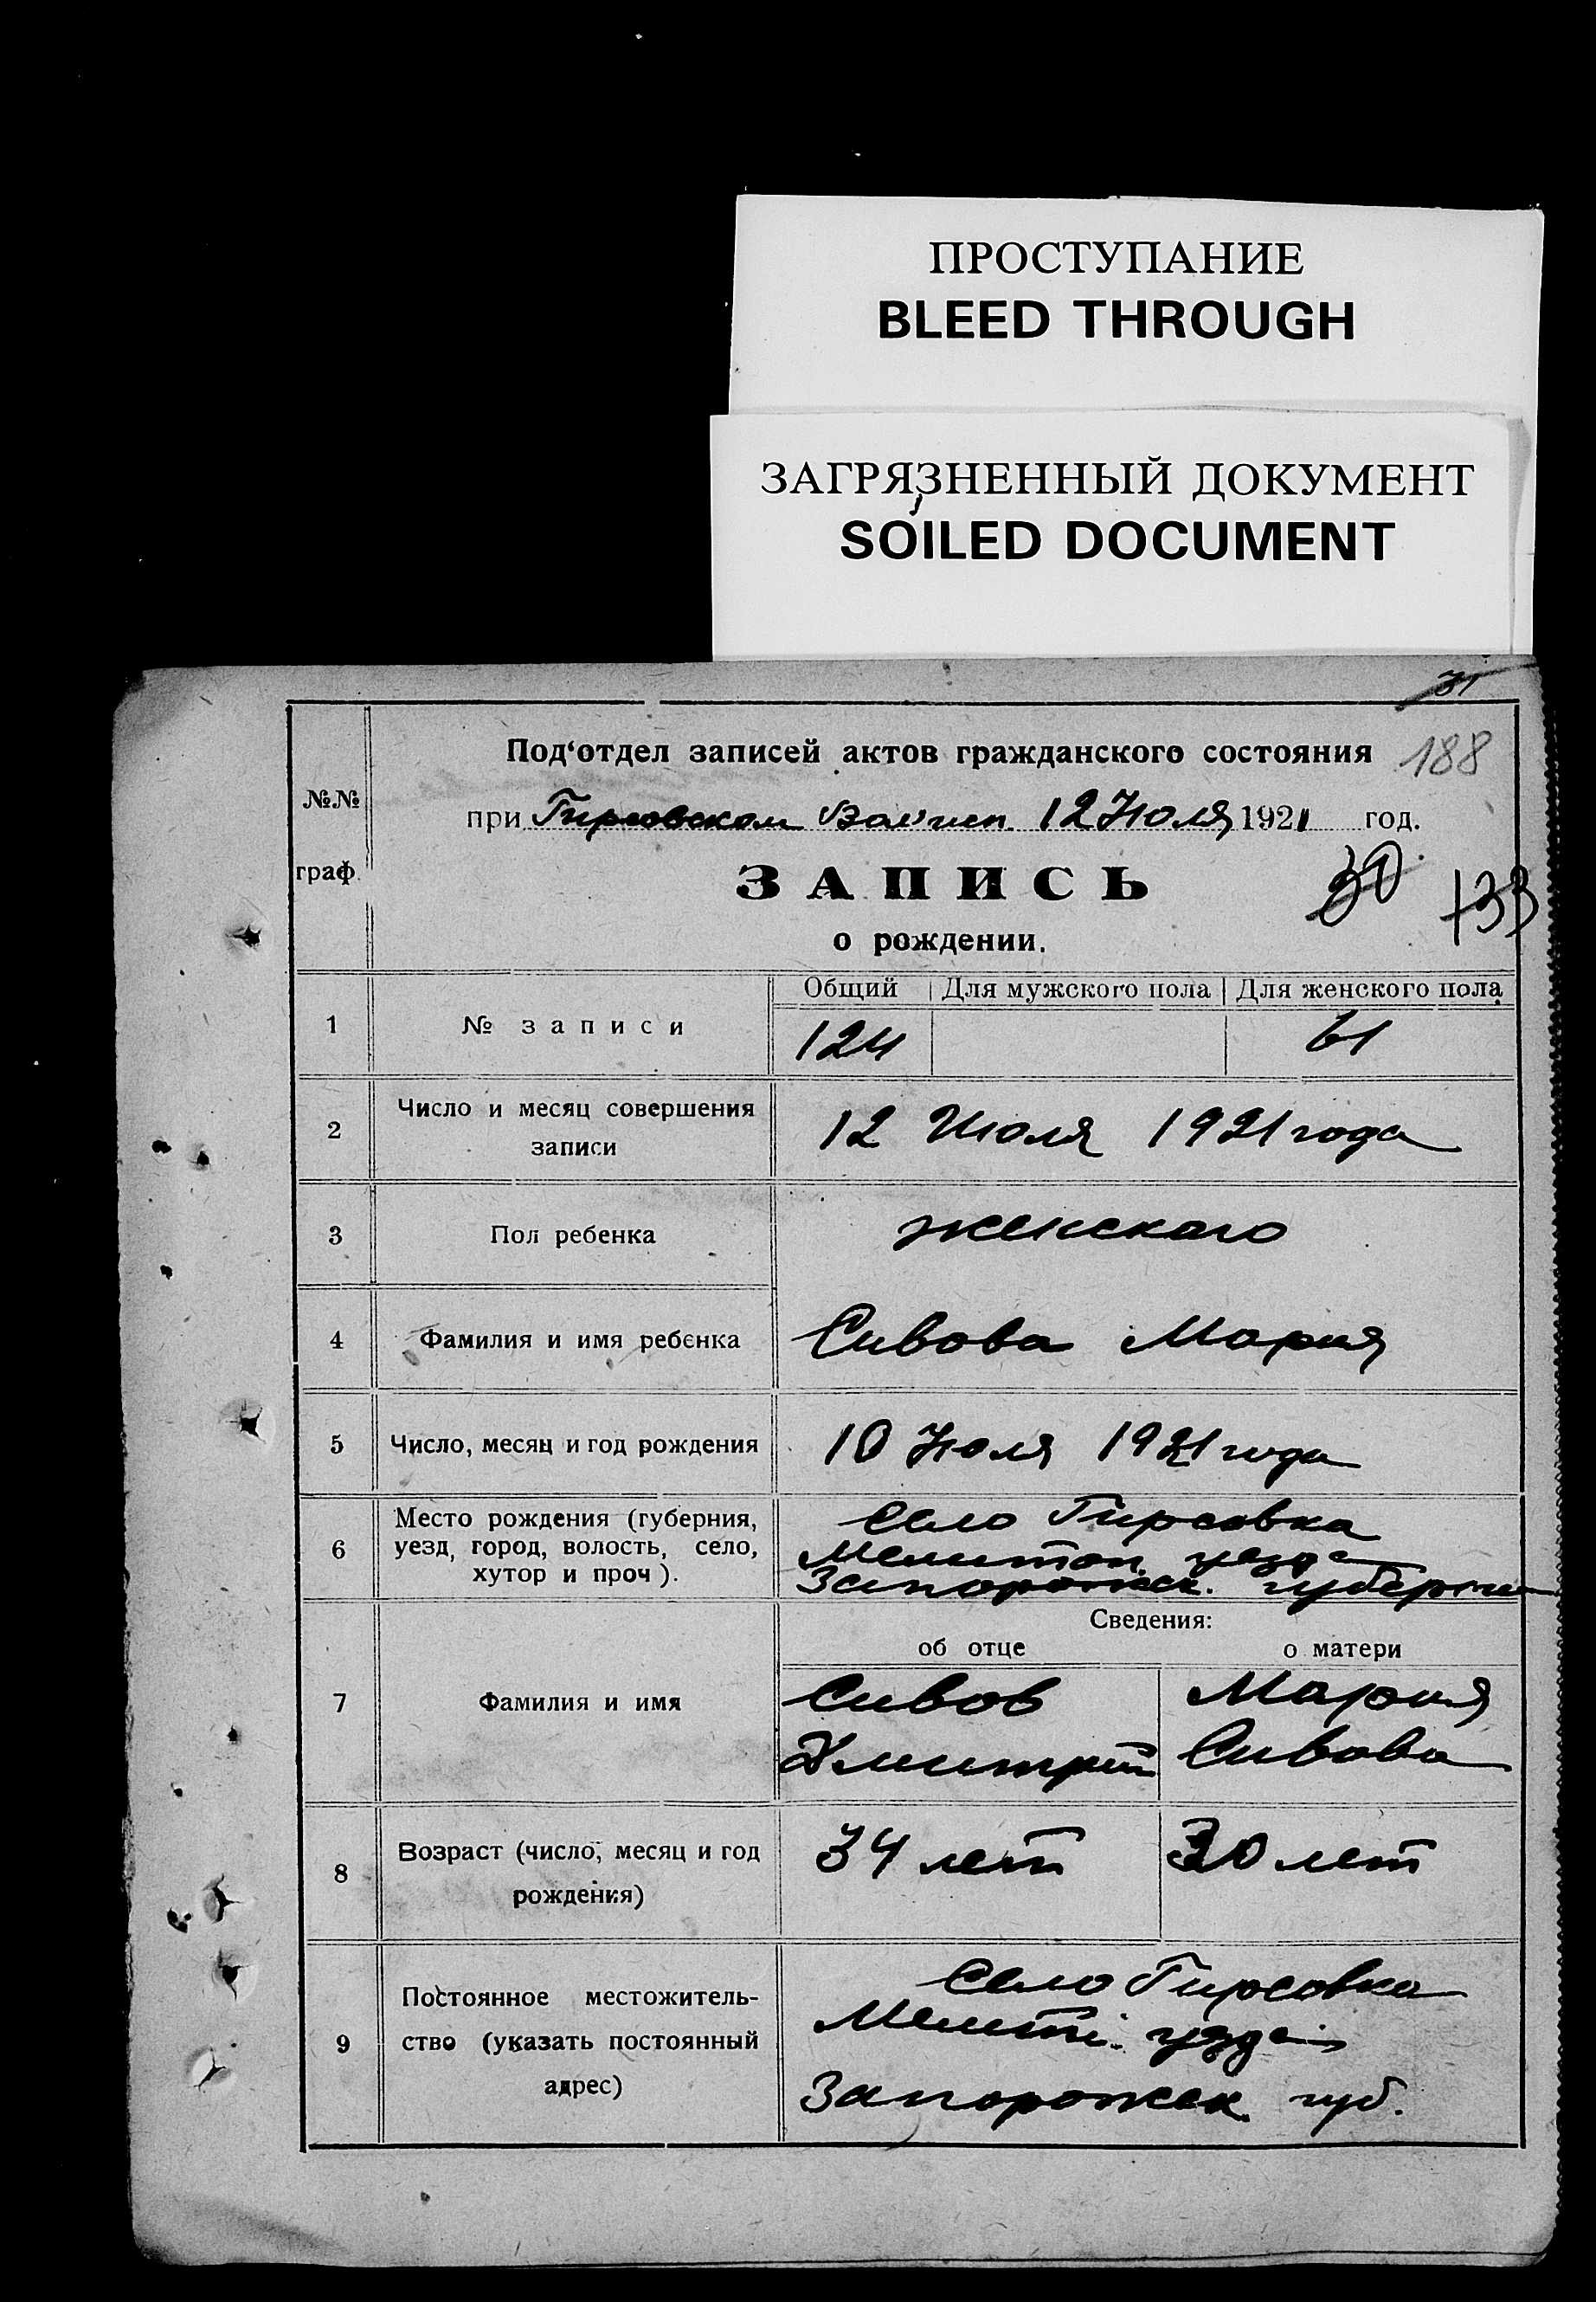 ПРОСТУПАНИЕ
BLEED THROUGH
ЗАГРЯЗНЕННЫЙ ДОКУМЕНТ
SOILED DOCUMENT
31
Под‘отдел записей актов гражданского состояния 188
№№ граф.
при Гирсовском Вол'исп. 12 Июля 1921 год.
ЗАПИСЬ
30 133
о рождении.
Общий Для мужского пола Для женского пола
1 № записи 124 61
2 Число и месяц совершения
записи
12 Июля 1921 года
3 Пол ребенка женского
4 Фамилия и имя ребенка Сивова Мария
5 Число, месяц и год рождения 10 Июля 1921 года
6 Место рождения (губерния,
уезд, город, волость, село,
хутор и проч).
Село Гирсовка
Мелитоп. уезда
Запорожск. губернии
Сведения:
об отце о матери
7 Фамилия и имя
Сивов Мария
Дмитрий Сивова
8 Возраст (число, месяц и год
рождения)
34 лет 30 лет
9 Постоянное местожитель-
ство (указать постоянный
адрес)
Село Гирсовка
Мелит. уезда
Запорожск. губ.